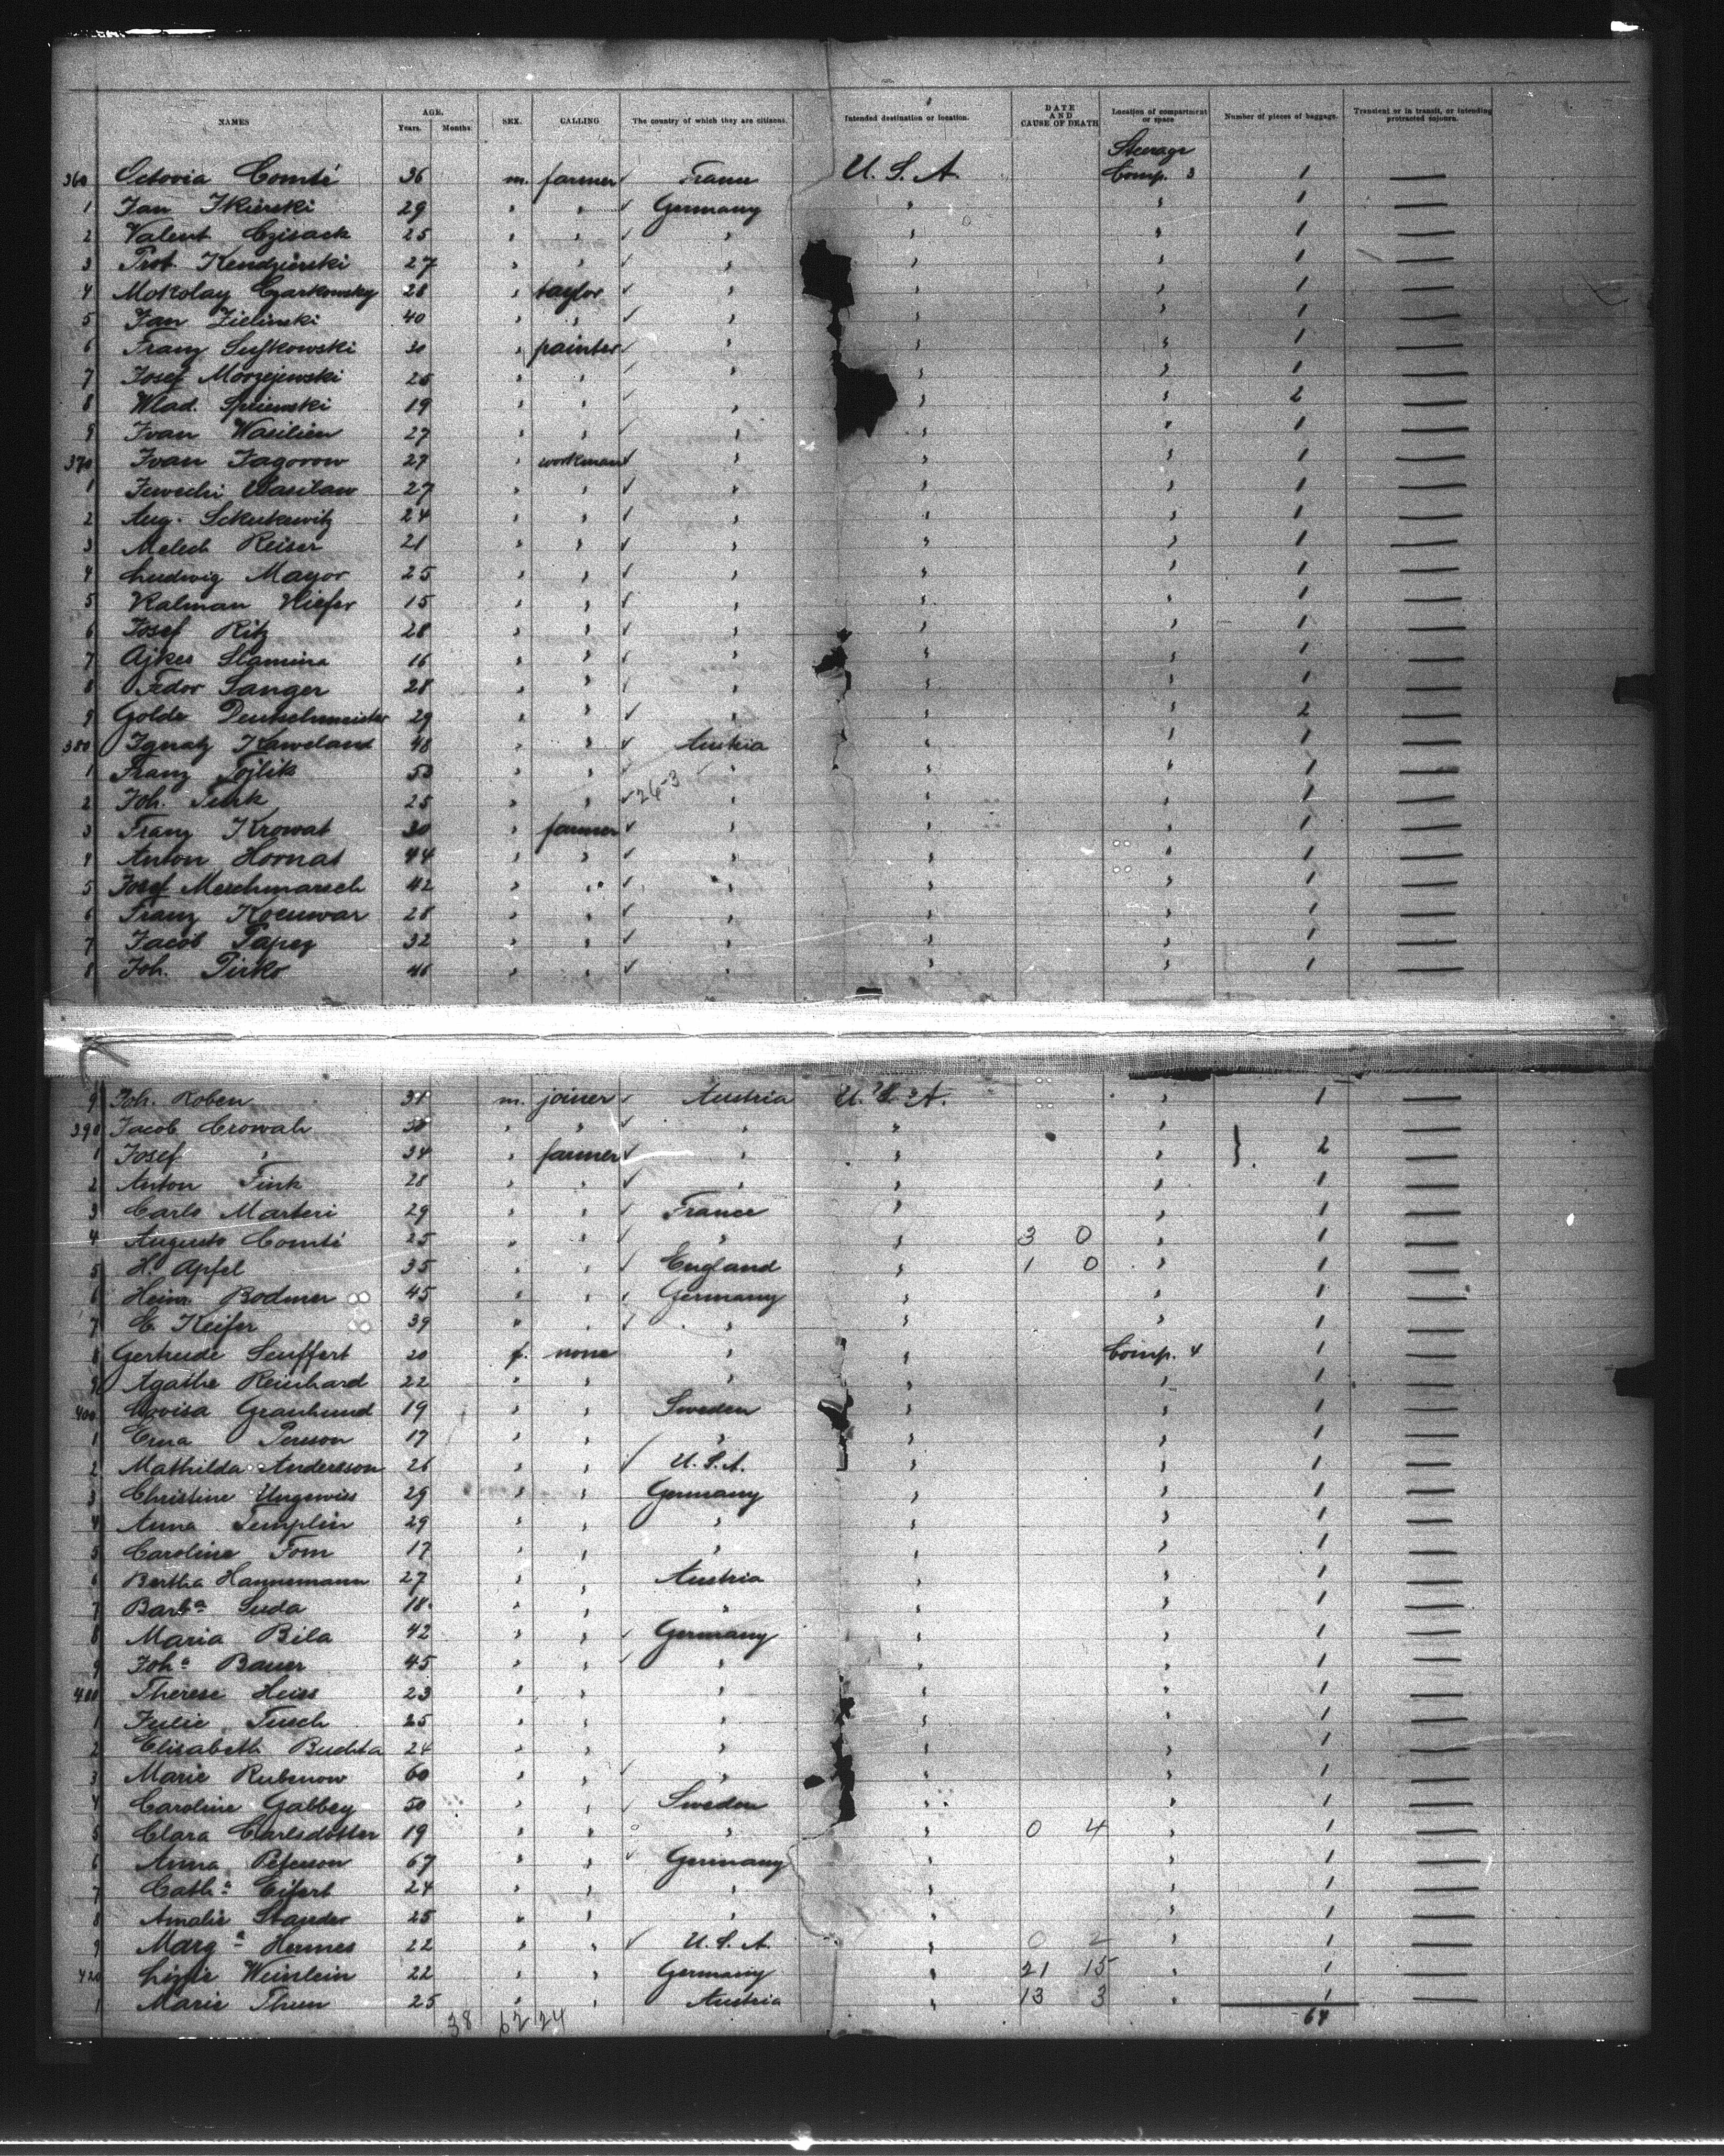 NAMES AGE. Years. Months. SEX. CALLING The country of which they are citizens. Intended destination or location. DATE AND CAUSE OF DEATH Location of compartment or space Number of pieces of baggage. Transient or in transit, or intending protracted sojourn.
Steerage
360 Octovia Comté 36 m. farmer France U. S. A. Comp. 3 1 —
1 Jan 29 " " Germany " " 1 —
2 Valent Czisack 25 " " " " " 1 —
3 Prot. Kendzierski 27 " " " " " 1 —
4 Mokolay Czarkowsky 28 " taylor " " " 1 —
5 Jan Zielinski 40 " " " " " 1 —
6 Franz 30 " painter " " " 1 —
7 Josef Morzejewski 25 " " " " " 1 —
8 Wlad. 19 " " " " " 2 —
9 Ivan Wasilien 27 " " " " " 1 —
370 Ivan Jagorow 27 " workman " " " 1 —
1 Wasilaw 27 " " " " " 1 —
2 Aug. 24 " " " " " 1 —
3 Melech Reiser 21 " " " " " 1 —
4 Ludwig Mayor 25 " " " " " 1 —
5 Kalman Hiefer 15 " " " " " 1 —
6 Josef Ritz 28 " " " " " 1 —
7 Ajkes Slamina 16 " " " " " 1 —
8 Fedor Sanger 28 " " " " " 1 —
9 Golde Deutschmeister 29 " " " " " 2 —
380 Ignatz 48 " " Austria " " 1 —
1 Franz Fojtik 53 " " " " " 1 —
2 Joh. Turk 25 " " 26-3 " " " 1 —
3 Franz Krowat 30 " farmer " " " 1 —
4 Anton Hornat 44 " " " " " 1 —
5 Josef Meschmarsch 42 " " " " " 1 —
6 Franz Koenwar 28 " " " " " 1 —
7 Jacob Papez 32 " " " " " 1 —
8 Joh. Pirko 46 " " " " " 1 —
9 Joh. Roben 31 m. joiner Austria U. S. A. " 1 —
390 Jacob Crowah 30 " " " " " —
1 Josef " 34 " farmer " " " } 2 —
2 Anton Turk 28 " " " " " 1 —
3 Carls Marteri 29 " " France " " 1 —
4 Augusto Comté 25 " " " " 3 0 " 1 —
5 H. Apfel 35 " " England " 1 0 " 1 —
6 Heinr. Bodmer 45 " " Germany " " 1 —
7 C. Keifer 39 " " " " " 1 —
8 Gertrude Seuffert 20 f. none " " Comp. 4 1 —
9 Agathe Reinhard 22 " " " " " 1 —
400 Lovisa Granlund 19 " " Sweden " " 1 —
1 Erna Person 17 " " " " " 1 —
2 Mathilda Andersson 21 " " U. S. A. " " 1 —
3 Christine Ungewiss 29 " " Germany " " 1 —
4 Anna Templin 29 " " " " " 1 —
5 Caroline Tom 17 " " " " " 1 —
6 Bertha Hannemann 27 " " Austria " " 1 —
7 Barbª Suda 18 " " " " " 1 —
8 Maria Bila 42 " " Germany " " 1 —
9 Johª Bauer 45 " " " " " 1 —
410 Therese Heiss 23 " " " " " 1 —
1 Julie Tusch 25 " " " " " 1 —
2 Elisabeth Buchta 24 " " " " " 1 —
3 Marie Rubenow 60 " " " " " 1 —
4 Caroline Gabbey 50 " " Sweden " " 1 —
5 Clara Carlsdotter 19 " " " " 0 4 " 1 —
6 Anna Peterson 67 " " Germany " " 1 —
7 Cathª Eifert 24 " " " " " 1 —
8 Amalie 25 " " " " " 1 —
9 Margª Hermes 22 " " U. S. A. " 0 2 " 1 —
420 Lizzie Weinlein 22 " " Germany " 21 15 " 1 —
1 Marie Thun 25 " " Austria " 13 3 " 1 —
38 62 24 64